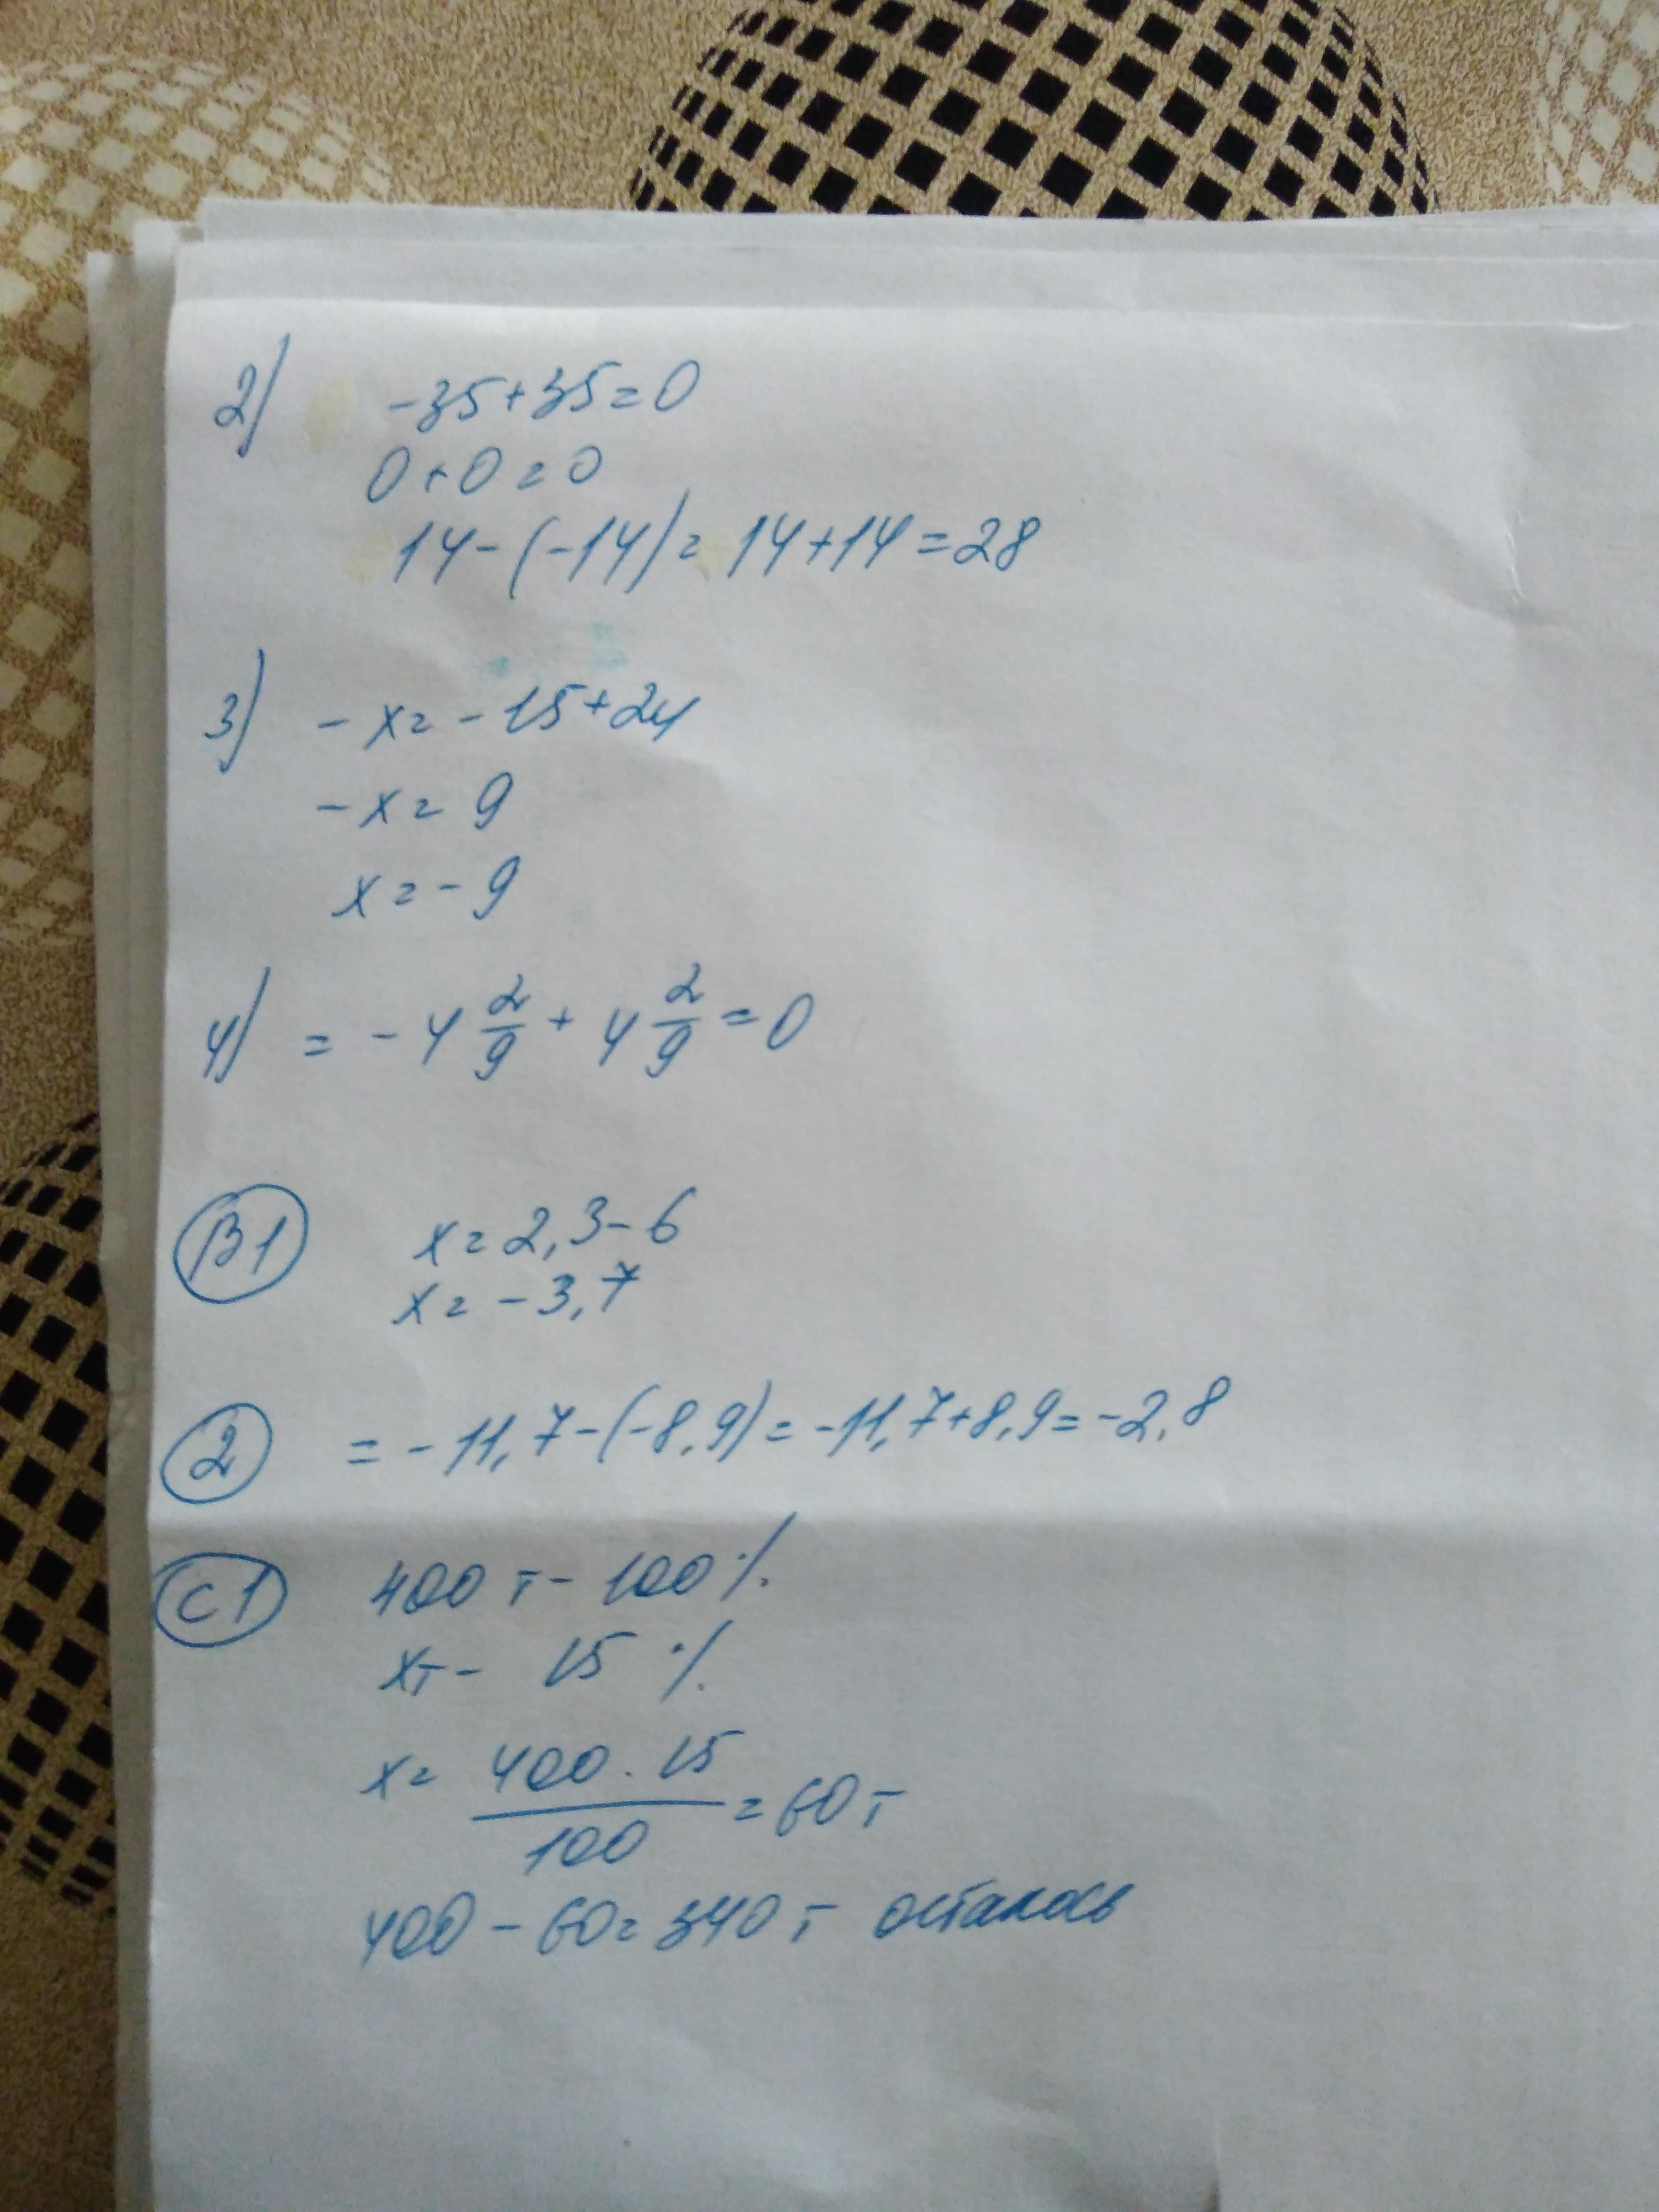 2) -35+35=0
0+0=0
14-(-14)=14+14=28
3) -x=-15+24
-x=9
x=-9
4) =-4 2/9 + 4 2/9 = 0
B1 x=2,3-6
x=-3,7
2 =-11,7-(-8,9)=-11,7+8,9=-2,8
C1 400 т - 100 %
xт - 15 %
x= 400 · 15 / 100 = 60 т
400 - 60 = 340 т осталось